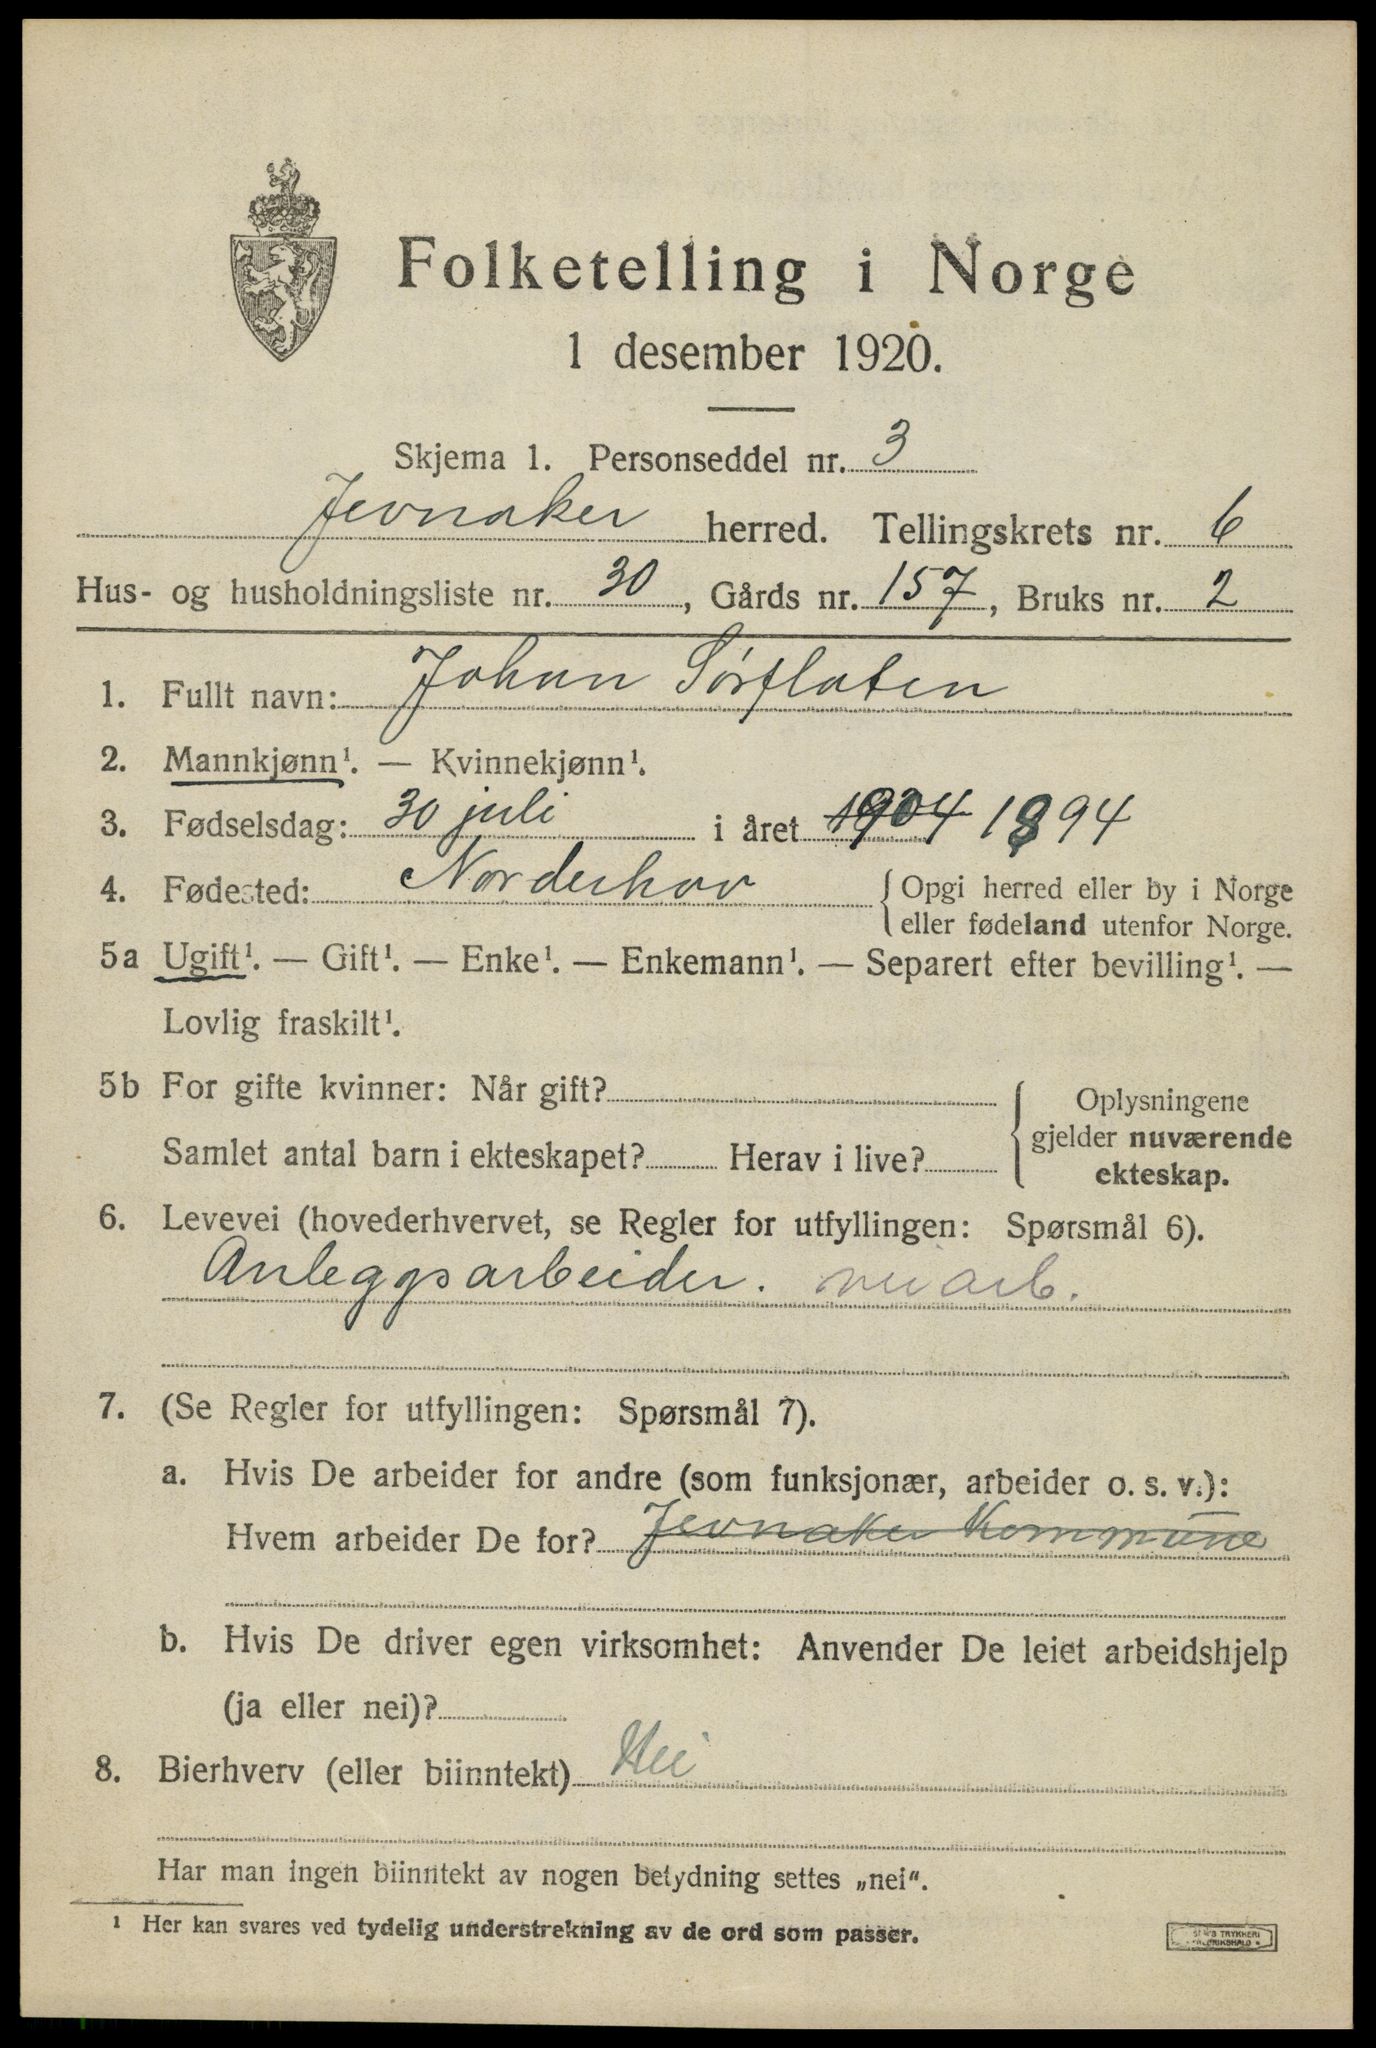 Folketelling i Norge
1 desember 1920.
Skjema 1. Personseddel nr. 3
Jevnaker herred. Tellingskrets nr. 6
Hus- og husholdningsliste nr. 30, Gårds nr. 157, Bruks nr. 2
1. Fullt navn: Johan Sørflaten
2. Mannkjønn¹. — Kvinnekjønn¹.
3. Fødselsdag: 30 juli i året 1904 1894
4. Fødested: Norderhov
Opgi herred eller by i Norge
eller fødeland utenfor Norge.
5a Ugift¹. — Gift¹. — Enke¹. — Enkemann¹. — Separert efter bevilling¹. —
Lovlig fraskilt¹.
5b For gifte kvinner: Når gift?
Samlet antal barn i ekteskapet? Herav i live?
Oplysningene
gjelder nuværende
ekteskap.
6. Levevei (hovederhvervet, se Regler for utfyllingen: Spørsmål 6).
Anleggsarbeider. veiarb.
7. (Se Regler for utfyllingen: Spørsmål 7).
a. Hvis De arbeider for andre (som funksjonær, arbeider o. s. v.):
Hvem arbeider De for? Jevnaker Kommune
b. Hvis De driver egen virksomhet: Anvender De leiet arbeidshjelp
(ja eller nei)?
8. Bierhverv (eller biinntekt) Nei
Har man ingen biinntekt av nogen betydning settes „nei“.
¹ Her kan svares ved tydelig understrekning av de ord som passer.
TRYKKERI